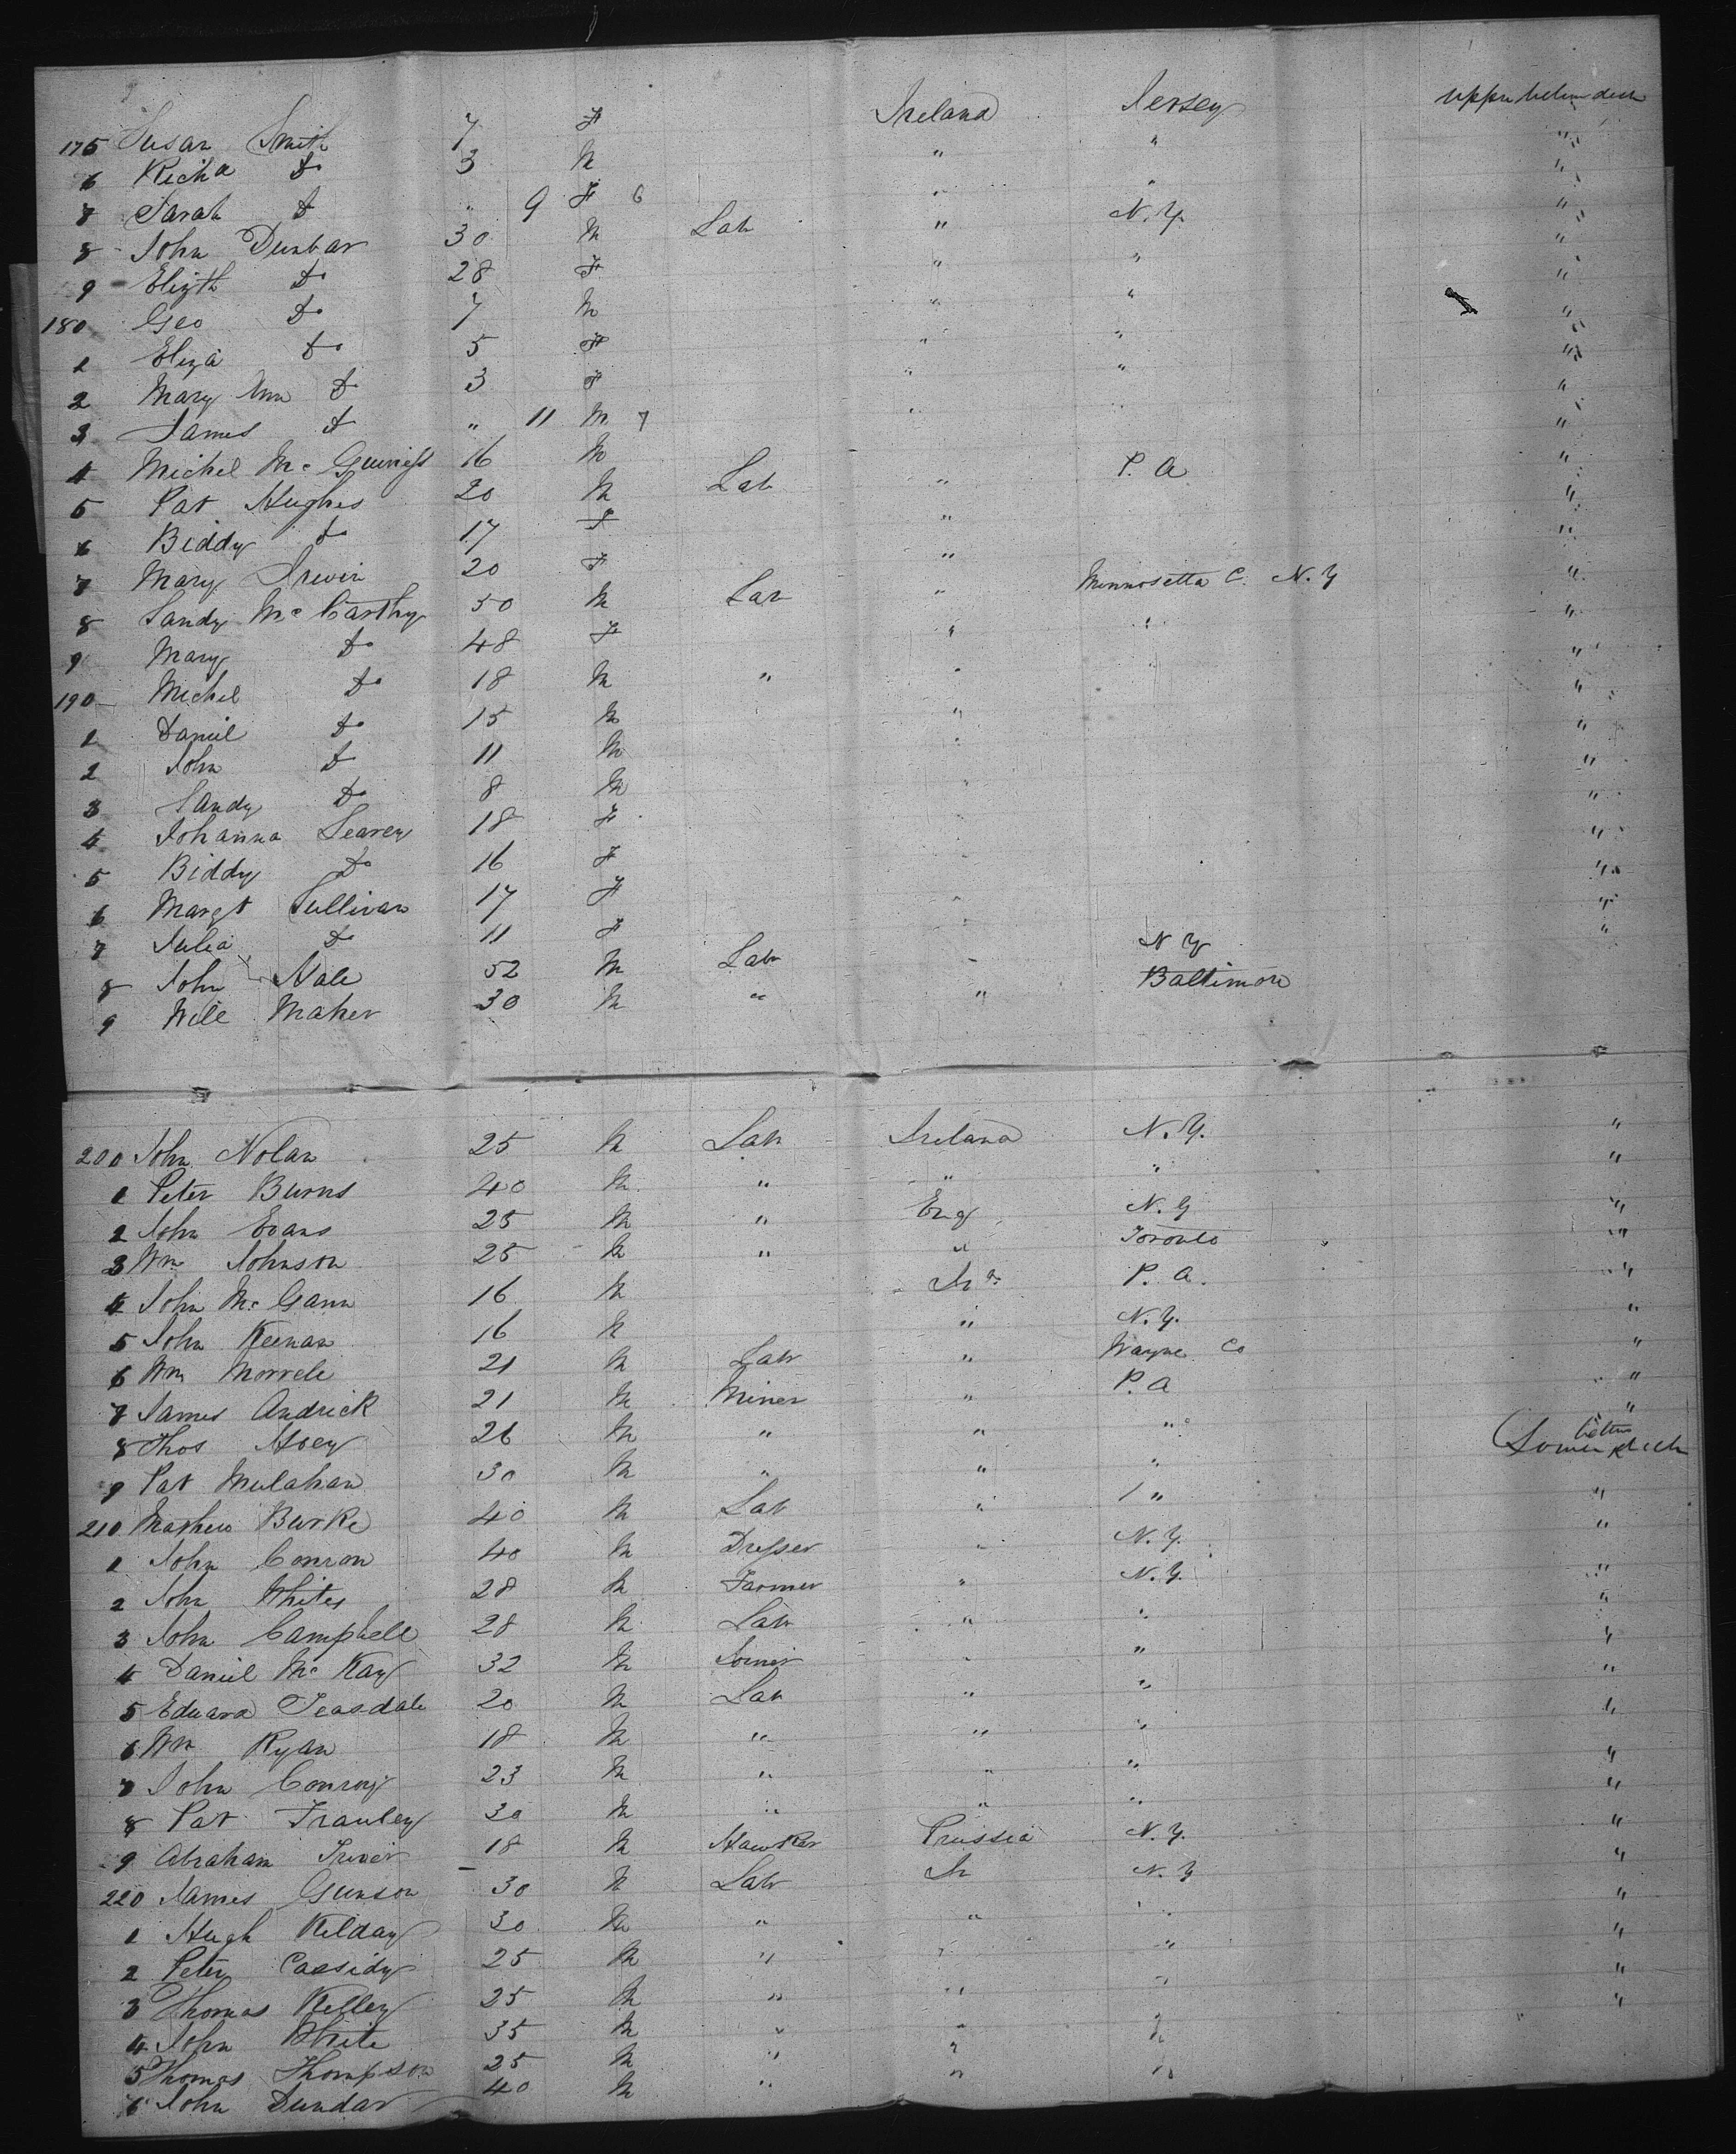 175 Susan Smith 7 F Ireland Jersey upper between deck
6 Richd Do 3 M " " "
7 Sarah Do " 9 F 6 " " "
8 John Dunbar 30 M Lab " N.Y. "
9 Elizth Do 28 F " " "
180 Geo Do 7 M " " "
1 Eliza Do 5 F " " "
2 Mary Ann Do 3 F " " "
3 James Do " 11 M 7 " "
4 Michel McGuiniss 16 M "
5 Pat Hughes 20 M Lab " P. A "
6 Biddy Do 17 F " "
7 Mary Irwin 20 F " "
8 Sandy McCarthy 50 M Lab " Minnosetta C. N.Y "
9 Mary Do 48 F " " "
190 Michel Do 18 M " " "
1 Daniel Do 15 M " "
2 John Do 11 M " "
3 Sandy Do 8 M " "
4 Johanna Learey 18 F " "
5 Biddy Do 16 F " "
6 Margt Sullivan 17 F " "
7 Julia Do 11 F " "
8 John Nale 52 M Lab " N Y "
9 Will Maher 30 M " " Baltimore
200 John Nolan 25 M Lab Ireland N.Y. "
1 Peter Burns 40 M " " " "
2 John Evans 25 M " Eng N.Y "
3 Wm Johnson 25 M " " Toronto "
4 John McGann 16 M Ird P. A. "
5 John Keenan 16 M " N.Y. "
6 Wm Morrele 21 M Lab " Wayne Co "
7 James Andrick 21 M Miner " P. A "
8 Thos Hoey 26 M " " " "
9 Pat Mulahan 30 M " " " Lower between deck
210 Mathew Burke 40 M Lab " " "
1 John Conron 40 M Dresser " N.Y. "
2 John Whites 28 M Farmer " N.Y. "
3 John Campbell 28 M Lab " " "
4 Daniel McKay 32 M Joiner " " "
5 Edward Teasdale 20 M Lab " " "
6 Wm Ryan 18 M " " " "
7 John Conroy 23 M " " " "
8 Pat Frauley 30 M " " " "
9 Abraham 18 M Hawker Prussia N.Y. "
220 James Gunson 30 M Lab Ir N.Y "
1 Hugh Kilday 30 M " " " "
2 Peter Cassidy 25 M " " " "
3 Thomas Kelley 25 M " " " "
4 John White 35 M " " " "
5 Thomas Thompson 25 M " " "
6 John Dundar 40 M " " "